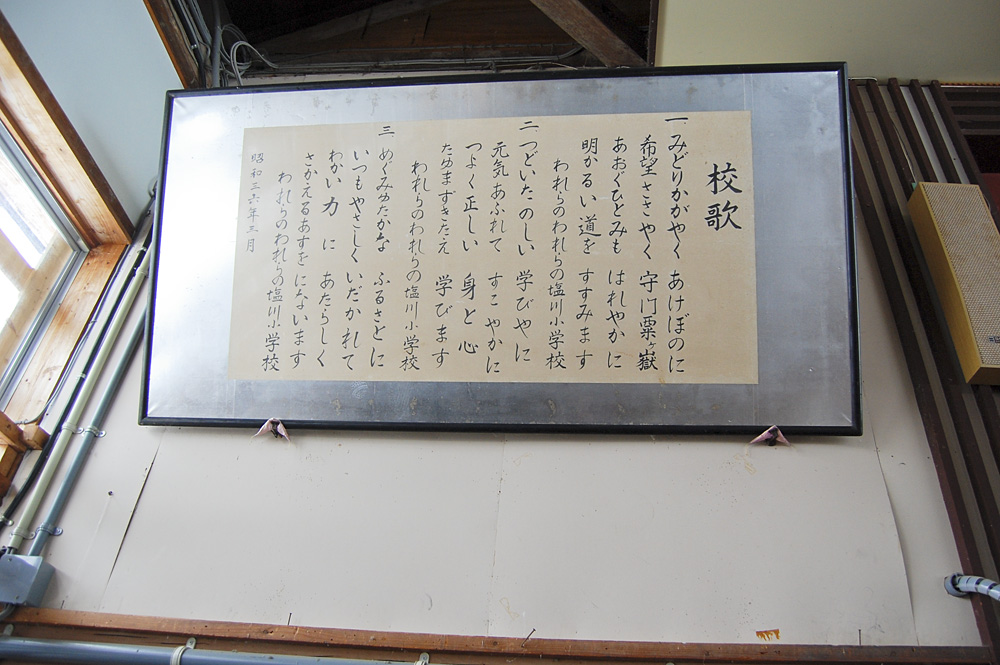 校歌
一 みどりかがやく あけぼのに
希望ささやく 守門粟ヶ嶽
あおぐひとみも はれやかに
明かるい道を すすみます
われらのわれらの塩川小学校
二 つどいたのしい 学びやに
元気あふれて すこやかに
つよく正しい 身と心
たゆまずきたえ 学びます
われらのわれらの塩川小学校
三 めぐみゆたかな ふるさとに
いつもやさしく いだかれて
わかい力に あたらしく
さかえるあすをにないます
われらのわれらの塩川小学校
昭和三六年三月